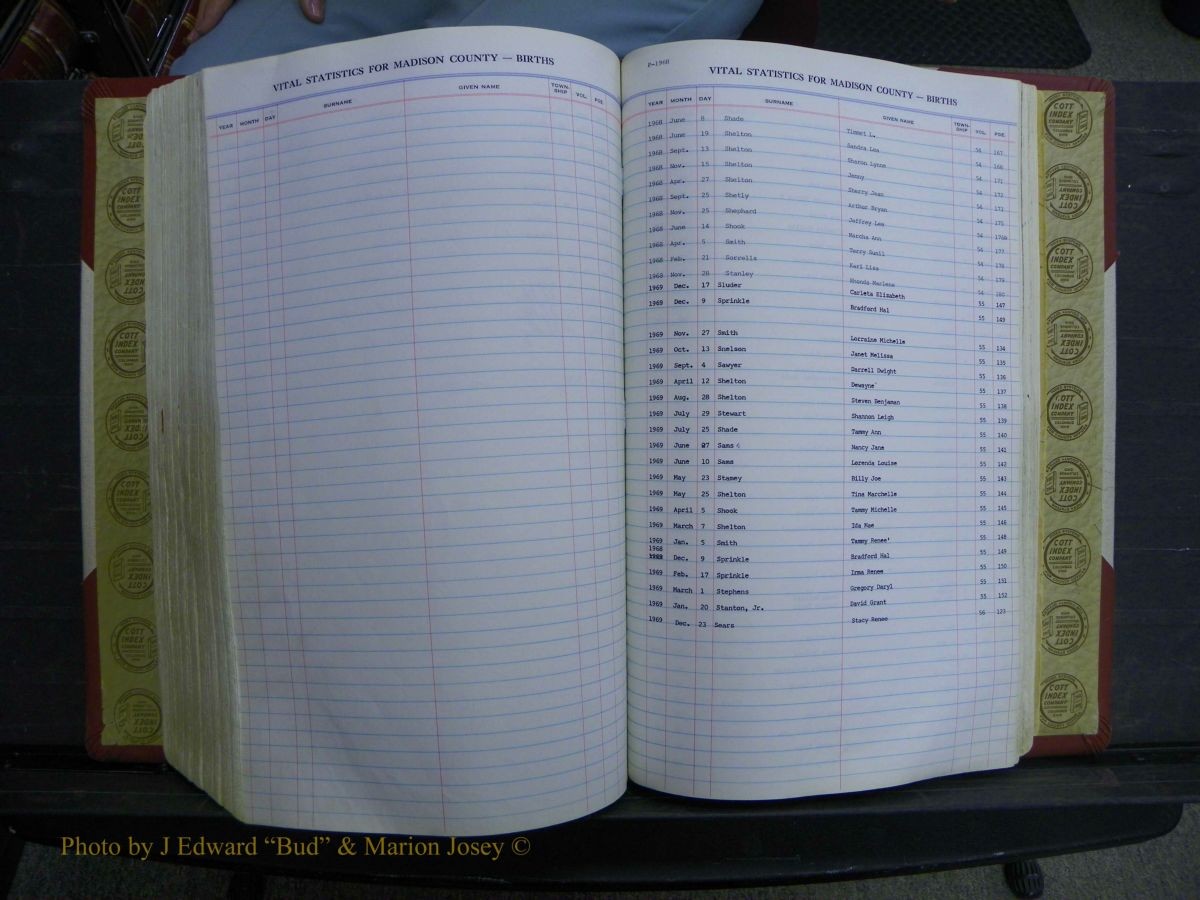 VITAL STATISTICS FOR MADISON COUNTY — BIRTHS
YEAR MONTH DAY SURNAME GIVEN NAME TOWN-SHIP VOL. PGE.
P-1968
VITAL STATISTICS FOR MADISON COUNTY — BIRTHS
YEAR MONTH DAY SURNAME GIVEN NAME TOWN-SHIP VOL. PGE.
1968 June 8 Shade Timmet L. 54 167
1968 June 19 Shelton Sandra Lea 54 168
1968 Sept. 13 Shelton Sharon Lynne 54 171
1968 Nov. 15 Shelton Jenny 54 172
1968 Apr. 27 Shelton Sherry Jean 54 173
1968 Sept. 25 Shetly Arthur Bryan 54 175
1968 Nov. 25 Shephard Jeffrey Lee 54 176B
1968 June 14 Shook Marcha Ann 54 177
1968 Apr. 5 Smith Terry Sunil 54 178
1968 Feb. 21 Sorrells Kari Lisa 54 179
1968 Nov. 28 Stanley Rhonda Marlene 54 180
1969 Dec. 17 Sluder Carleta Elizabeth 55 147
1969 Dec. 9 Sprinkle Bradford Hal 55 149
1969 Nov. 27 Smith Lorraine Michelle 55 134
1969 Oct. 13 Snelson Janet Melissa 55 135
1969 Sept. 4 Sawyer Darrell Dwight 55 136
1969 April 12 Shelton Dewayne' 55 137
1969 Aug. 28 Shelton Steven Benjaman 55 138
1969 July 29 Stewart Shannon Leigh 55 139
1969 July 25 Shade Tammy Ann 55 140
1969 June 27 Sams Nancy Jane 55 141
1969 June 10 Sams Lorenda Louise 55 142
1969 May 23 Stamey Billy Joe 55 143
1969 May 25 Shelton Tina Marchelle 55 144
1969 April 5 Shook Tammy Michelle 55 145
1969 March 7 Shelton Ida Mae 55 146
1969 Jan. 5 Smith Tammy Renee' 55 148
1968
1969 Dec. 9 Sprinkle Bradford Hal 55 149
1969 Feb. 17 Sprinkle Irma Renee 55 150
1969 March 1 Stephens Gregory Daryl 55 151
1969 Jan. 20 Stanton, Jr. David Grant 55 152
1969 Dec. 23 Sears Stacy Renee 56 123
COTT INDEX COMPANY COLUMBUS OHIO
Photo by J Edward “Bud” & Marion Josey ©